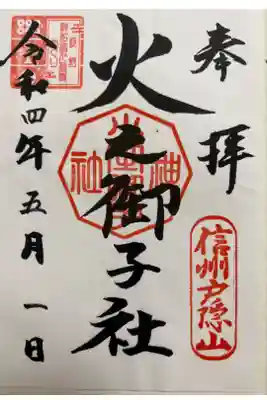 奉拝
信州戸隠山
火之御子社
令和四年五月一日